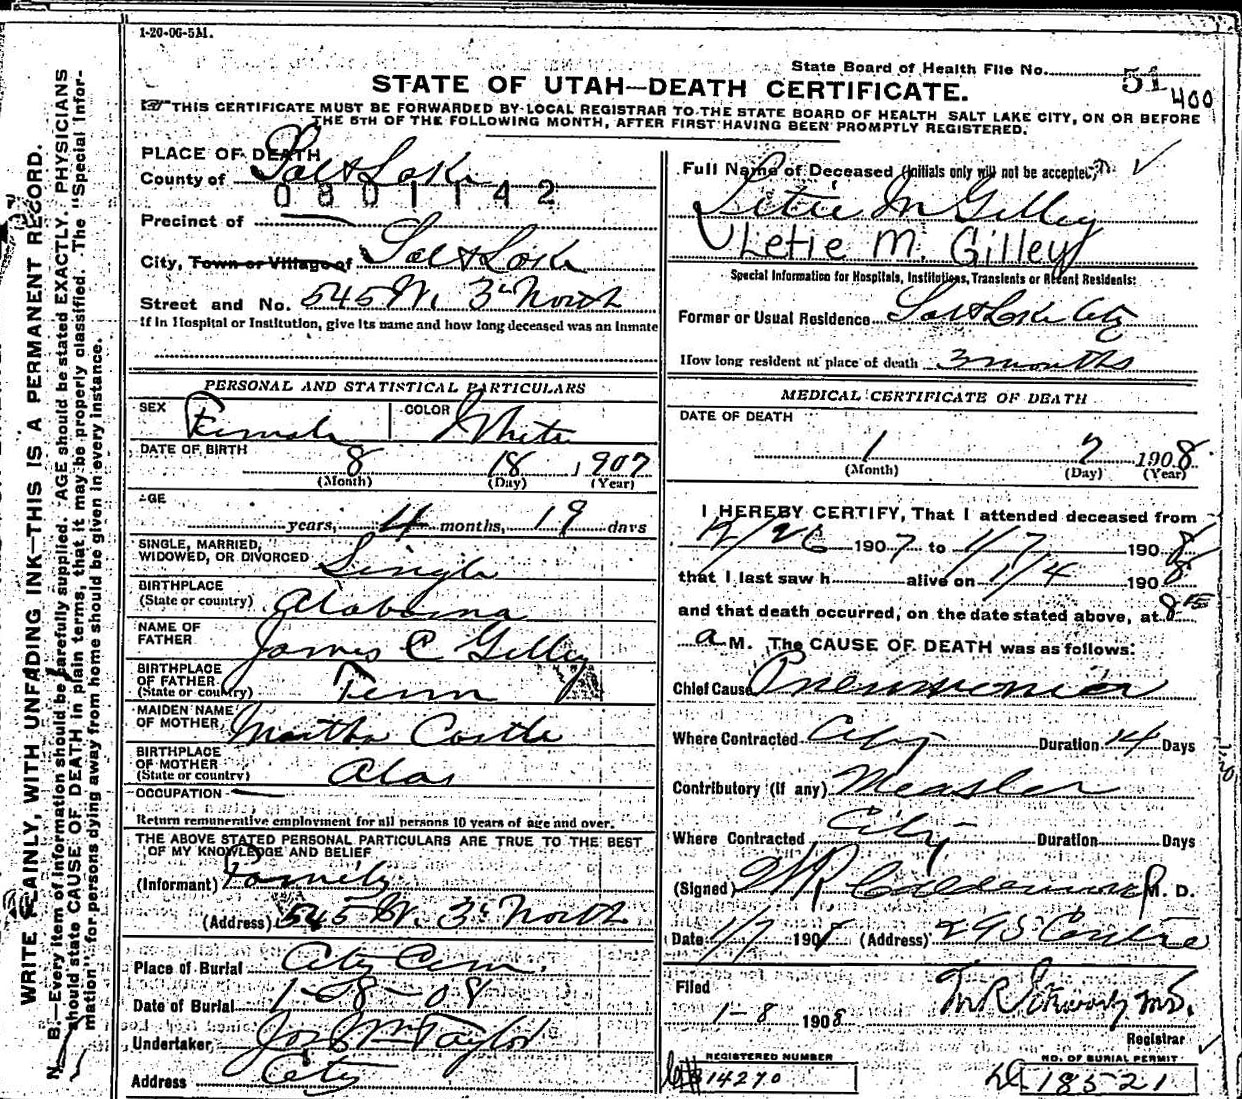 1-20-06-5M.
State Board of Health File No. 51
400
STATE OF UTAH—DEATH CERTIFICATE.
THIS CERTIFICATE MUST BE FORWARDED BY LOCAL REGISTRAR TO THE STATE BOARD OF HEALTH SALT LAKE CITY, ON OR BEFORE
THE 5TH OF THE FOLLOWING MONTH, AFTER FIRST HAVING BEEN PROMPTLY REGISTERED.
WRITE PLAINLY, WITH UNFADING INK—THIS IS A PERMANENT RECORD.
N. B.—Every item of information should be carefully supplied. AGE should be stated EXACTLY. PHYSICIANS
should state CAUSE OF DEATH in plain terms, that it may be properly classified. The "Special Infor-
mation" for persons dying away from home should be given in every instance.
PLACE OF DEATH
County of Salt Lake
0801142
Precinct of
City, Town or Village of Salt Lake
Street and No. 545 W. 3d North
If in Hospital or Institution, give its name and how long deceased was an inmate
PERSONAL AND STATISTICAL PARTICULARS
SEX Female COLOR White
DATE OF BIRTH
8 18 1907
(Month) (Day) (Year)
AGE
years, 4 months, 19 days
SINGLE, MARRIED,
WIDOWED, OR DIVORCED Single
BIRTHPLACE
(State or country) Alabama
NAME OF
FATHER James C Gilley
BIRTHPLACE
OF FATHER
(State or country) Tenn
MAIDEN NAME
OF MOTHER Martha Castle
BIRTHPLACE
OF MOTHER
(State or country) Ala
OCCUPATION —
Return remunerative employment for all persons 10 years of age and over.
THE ABOVE STATED PERSONAL PARTICULARS ARE TRUE TO THE BEST
OF MY KNOWLEDGE AND BELIEF
(Informant) Family
(Address) 545 W. 3d North
Place of Burial City Cem.
Date of Burial 1-08-08
Undertaker Jos Wm Taylor
Address City
Full Name of Deceased (Initials only will not be accepted)
Letie M Gilley
Letie M. Gilley
Special Information for Hospitals, Institutions, Transients or Recent Residents:
Former or Usual Residence Salt Lake City
How long resident at place of death 3 months
MEDICAL CERTIFICATE OF DEATH
DATE OF DEATH
1 7 1908
(Month) (Day) (Year)
I HEREBY CERTIFY, That I attended deceased from
12/26 1907 to 1/7 1908
that I last saw h alive on 1/4 1908
and that death occurred, on the date stated above, at 8 15
a M. The CAUSE OF DEATH was as follows:
Chief Cause Pneumonia
Where Contracted City Duration 14 Days
Contributory (If any) Measles
Where Contracted City Duration Days
(Signed) M. D.
Date 1/7 1908 (Address)
Filed
1-8 1908
Registrar
REGISTERED NUMBER
14270
NO. OF BURIAL PERMIT
18521